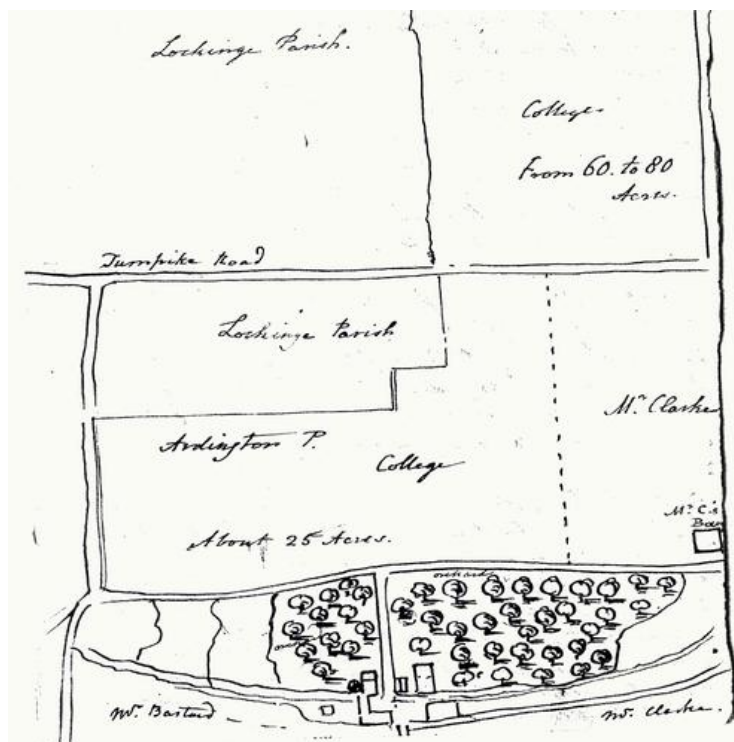 Lockinge Parish.
College
From 60. to 80
Acres.
Turnpike Road
Lockinge Parish
Mr Clarke
Ardington P.
College
Mr C.'s
Barn
About 25 Acres.
orchard
Mr. Bastard
Mr. Clarke